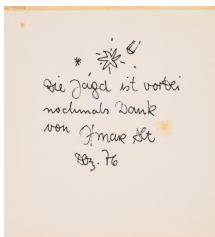 Die Jagd ist vorbei
nochmals Dank
von Otmar Alt
Dez. 76